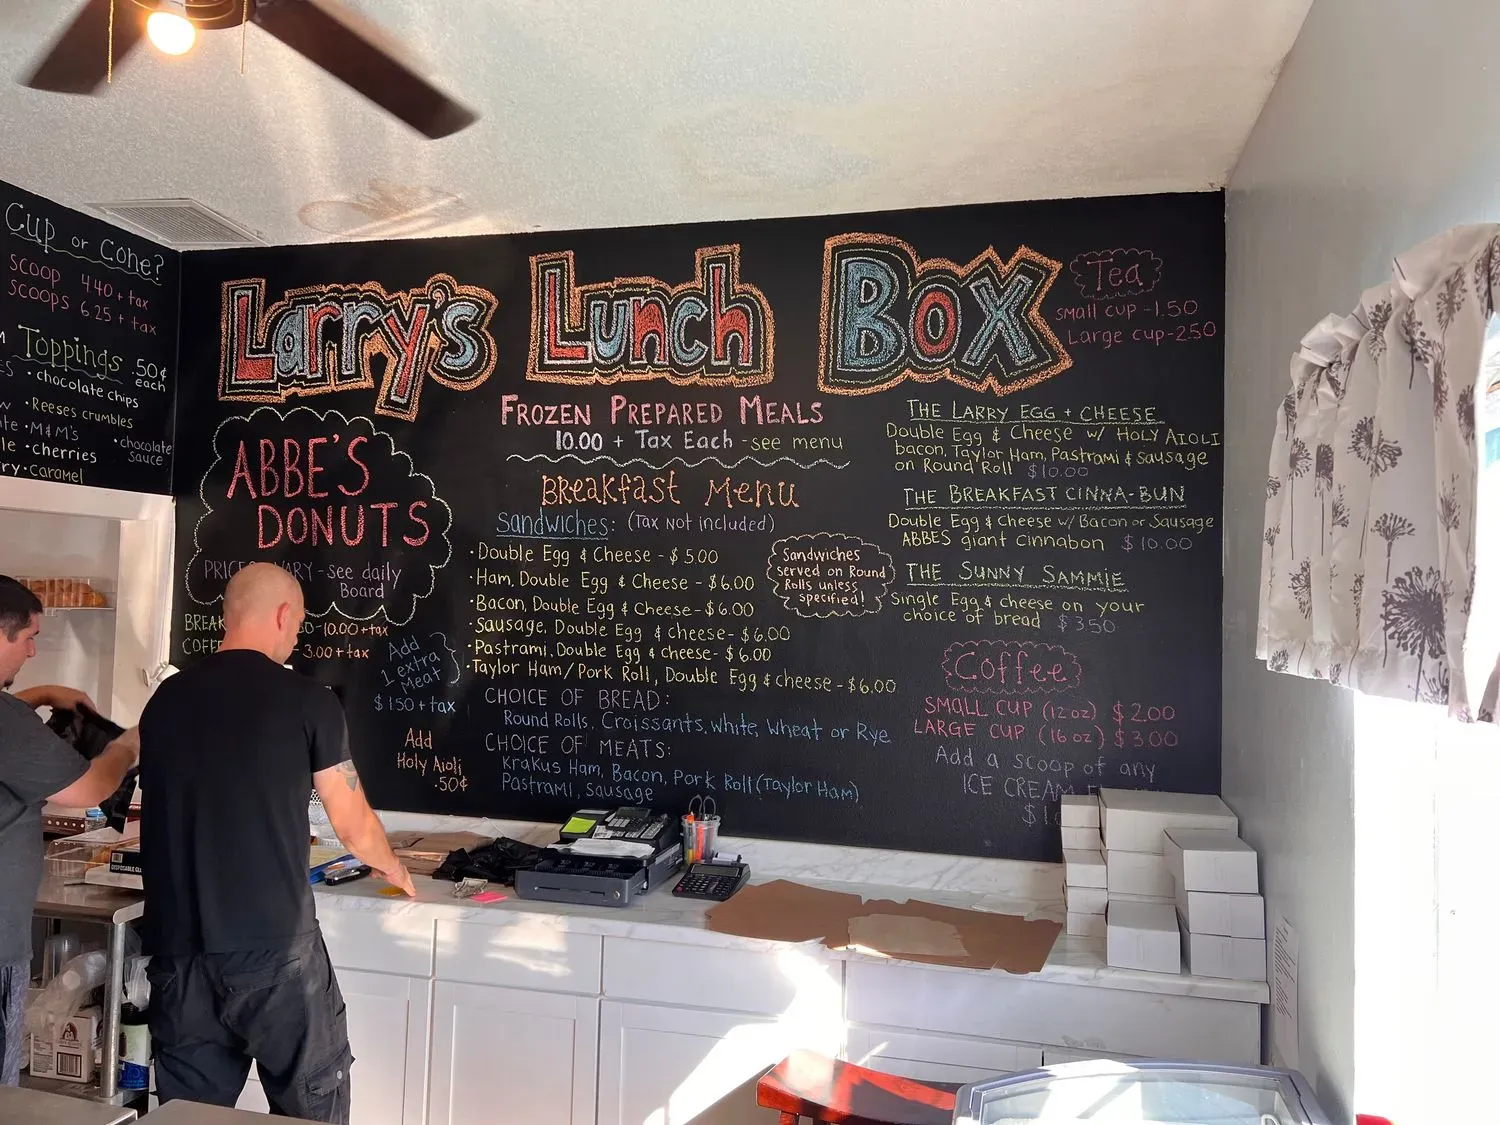 Cup or Cone?
SCOOP 4.40 + tax
SCOOPS 6.25 + tax
Toppings .50¢
each
• chocolate chips
• Reeses crumbles
• M&M's
• chocolate
sauce
• cherries
• caramel
Larry's Lunch Box
Tea
small cup - 1.50
Large cup - 2.50
ABBE'S
DONUTS
VARY - see daily
Board
10.00 + tax
3.00 + tax
Add
1 extra
Meat
$1.50 + tax
Add
Holy Aioli
.50¢
Frozen Prepared Meals
10.00 + Tax Each - see menu
Breakfast Menu
Sandwiches: (Tax Not included)
• Double Egg & Cheese - $5.00
• Ham, Double Egg & Cheese - $6.00
• Bacon, Double Egg & Cheese - $6.00
• Sausage, Double Egg & cheese - $6.00
• Pastrami, Double Egg & cheese - $6.00
• Taylor Ham/Pork Roll, Double Egg & cheese - $6.00
Sandwiches
served on Round
Rolls unless
specified!
CHOICE OF BREAD:
Round Rolls, Croissants, white, wheat or Rye
CHOICE OF MEATS:
Krakus Ham, Bacon, Pork Roll (Taylor Ham)
Pastrami, Sausage
THE LARRY EGG + CHEESE
Double Egg & Cheese w/ HOLY AIOLI
bacon, Taylor Ham, Pastrami & Sausage
on Round Roll $10.00
THE BREAKFAST CINNA-BUN
Double Egg & Cheese w/ Bacon or Sausage
ABBES giant Cinnabon $10.00
THE SUNNY SAMMIE
Single Egg & cheese on your
choice of bread $3.50
Coffee
SMALL CUP (12 oz) $2.00
LARGE CUP (16 oz) $3.00
Add a scoop of any
ICE CREAM